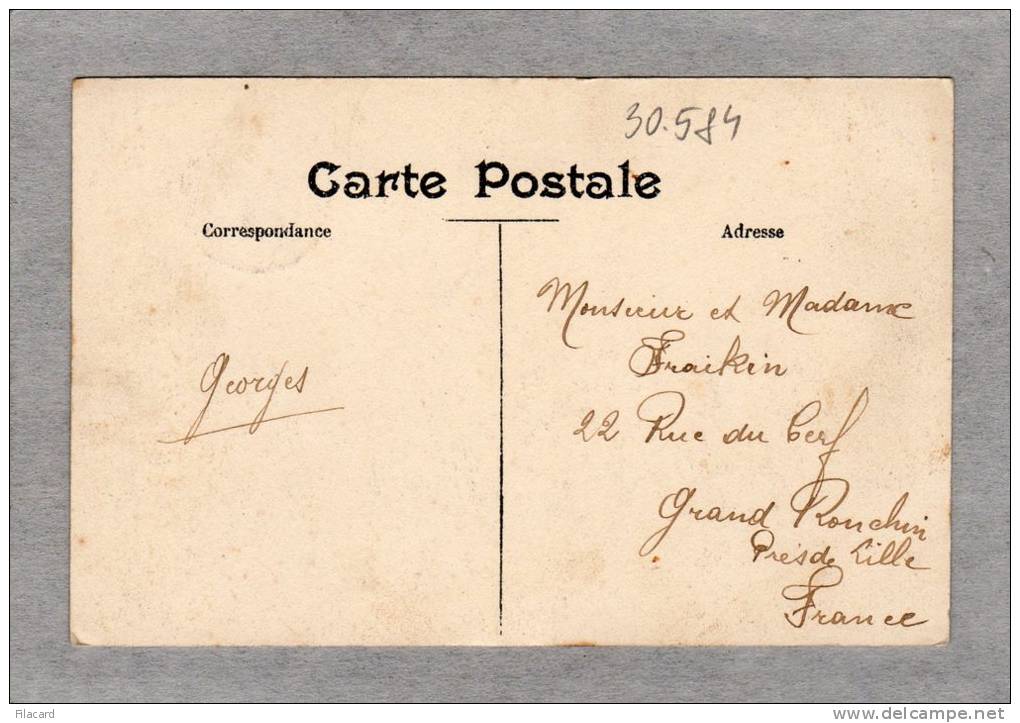 30.584
Carte Postale
Correspondance
Adresse
Georges
Monsieur et Madame
Fraikin
22 Rue du Cerf
Grand Ronchin
Près de Lille
France
filacard
http://www.delcampe.net